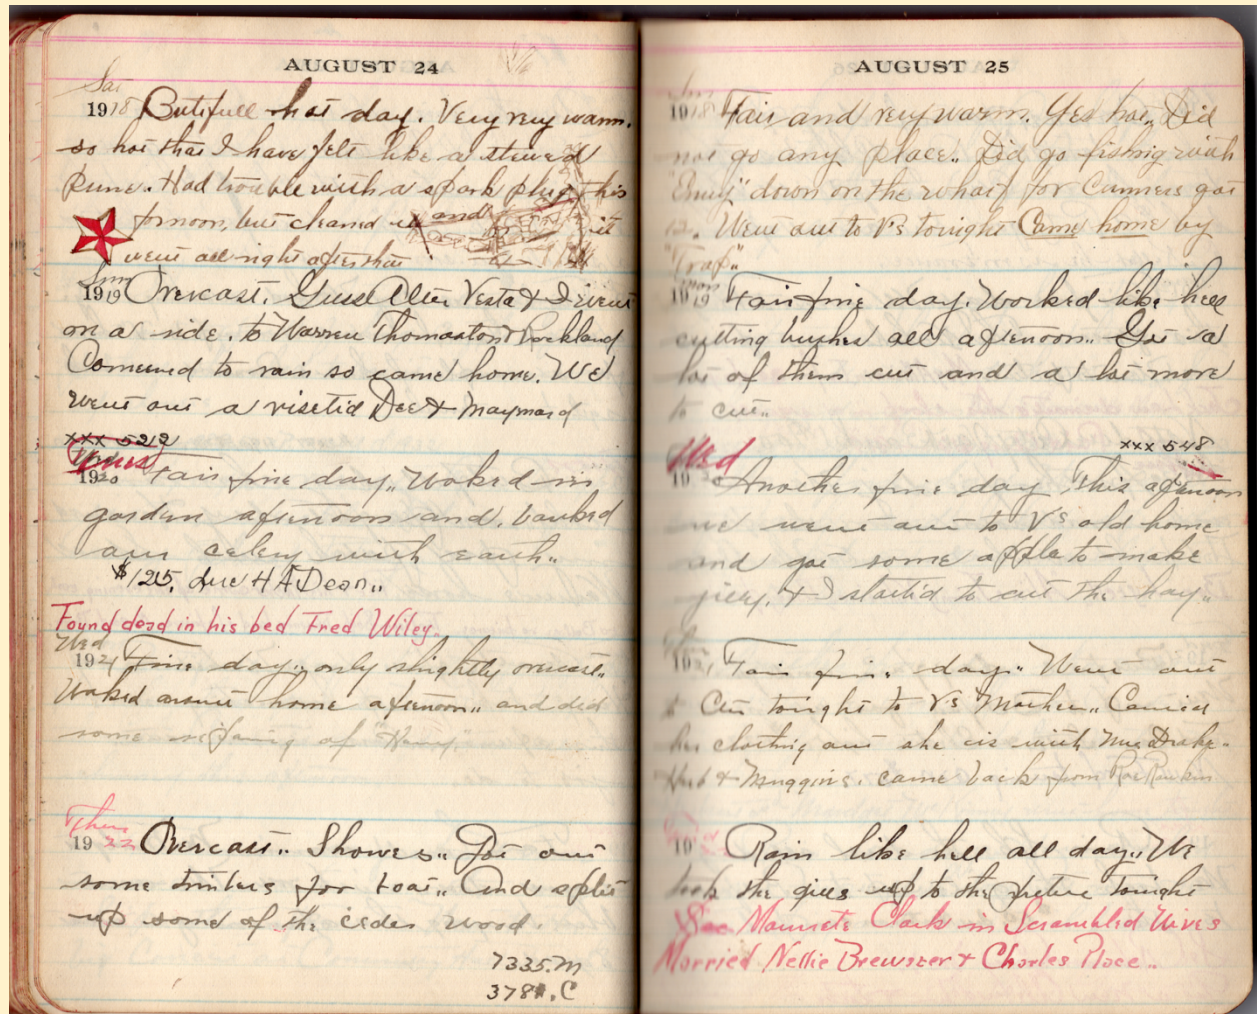 AUGUST 24
Sat
1918 Butifull hot day. Very very warm.
so hot that I have felt like a stewed
prune. Had trouble with a spark plug this
fornoon, but cleaned it and it
went all right after that
Sun
1919 Overcast. Vesta & I went
on a ride. to Warren Thomaston & Rockland
Comenced to rain so came home. We
went out a visetid Dee & Maynard
xxx 5212
Tues
1920 Fair fine day,, Woked in
garden afternoon and. banked
our celery with earth..
$125. due H A Dean..
Found dead in his bed Fred Wiley..
Wed
1921 Fine day,, only slightly overcast..
Woked around home afternoon,, and did
some of "Henry"
Thurs
1922 Overcast.. Showes.. Got out
some timbers for boat.. And split
up some of the ceder wood.
7335.M
378.C
AUGUST 25
Sun
1918 Fair and very warm. Yes hot,, Did
not go any place.. Did go fishig with
"Emily" down on the wharf for Cunners got
12. Went out to Vs tonight Came home by
"Trap"
Mon
1919 Fair fine day. Worked like hell
cutting bushes all afternoon.. Got a
lot of them cut and a lot more
to cut..
xxx 548
Wed
19 Another fine day This afternoon
we went out to Vs old home
and got some apple to make
jelly. & I startid to cut the hay..
1921 Fair fine day.. Went out
to tonight to Vs Mother.. Carried
her clothing out she is with Mrs Drake..
Herb & Muggins. came back from
19 Rain like hell all day.. We
took the girls up to the picture tonight
See Clark in Scrambled Wives
Married Nellie Brewster & Charles Place..